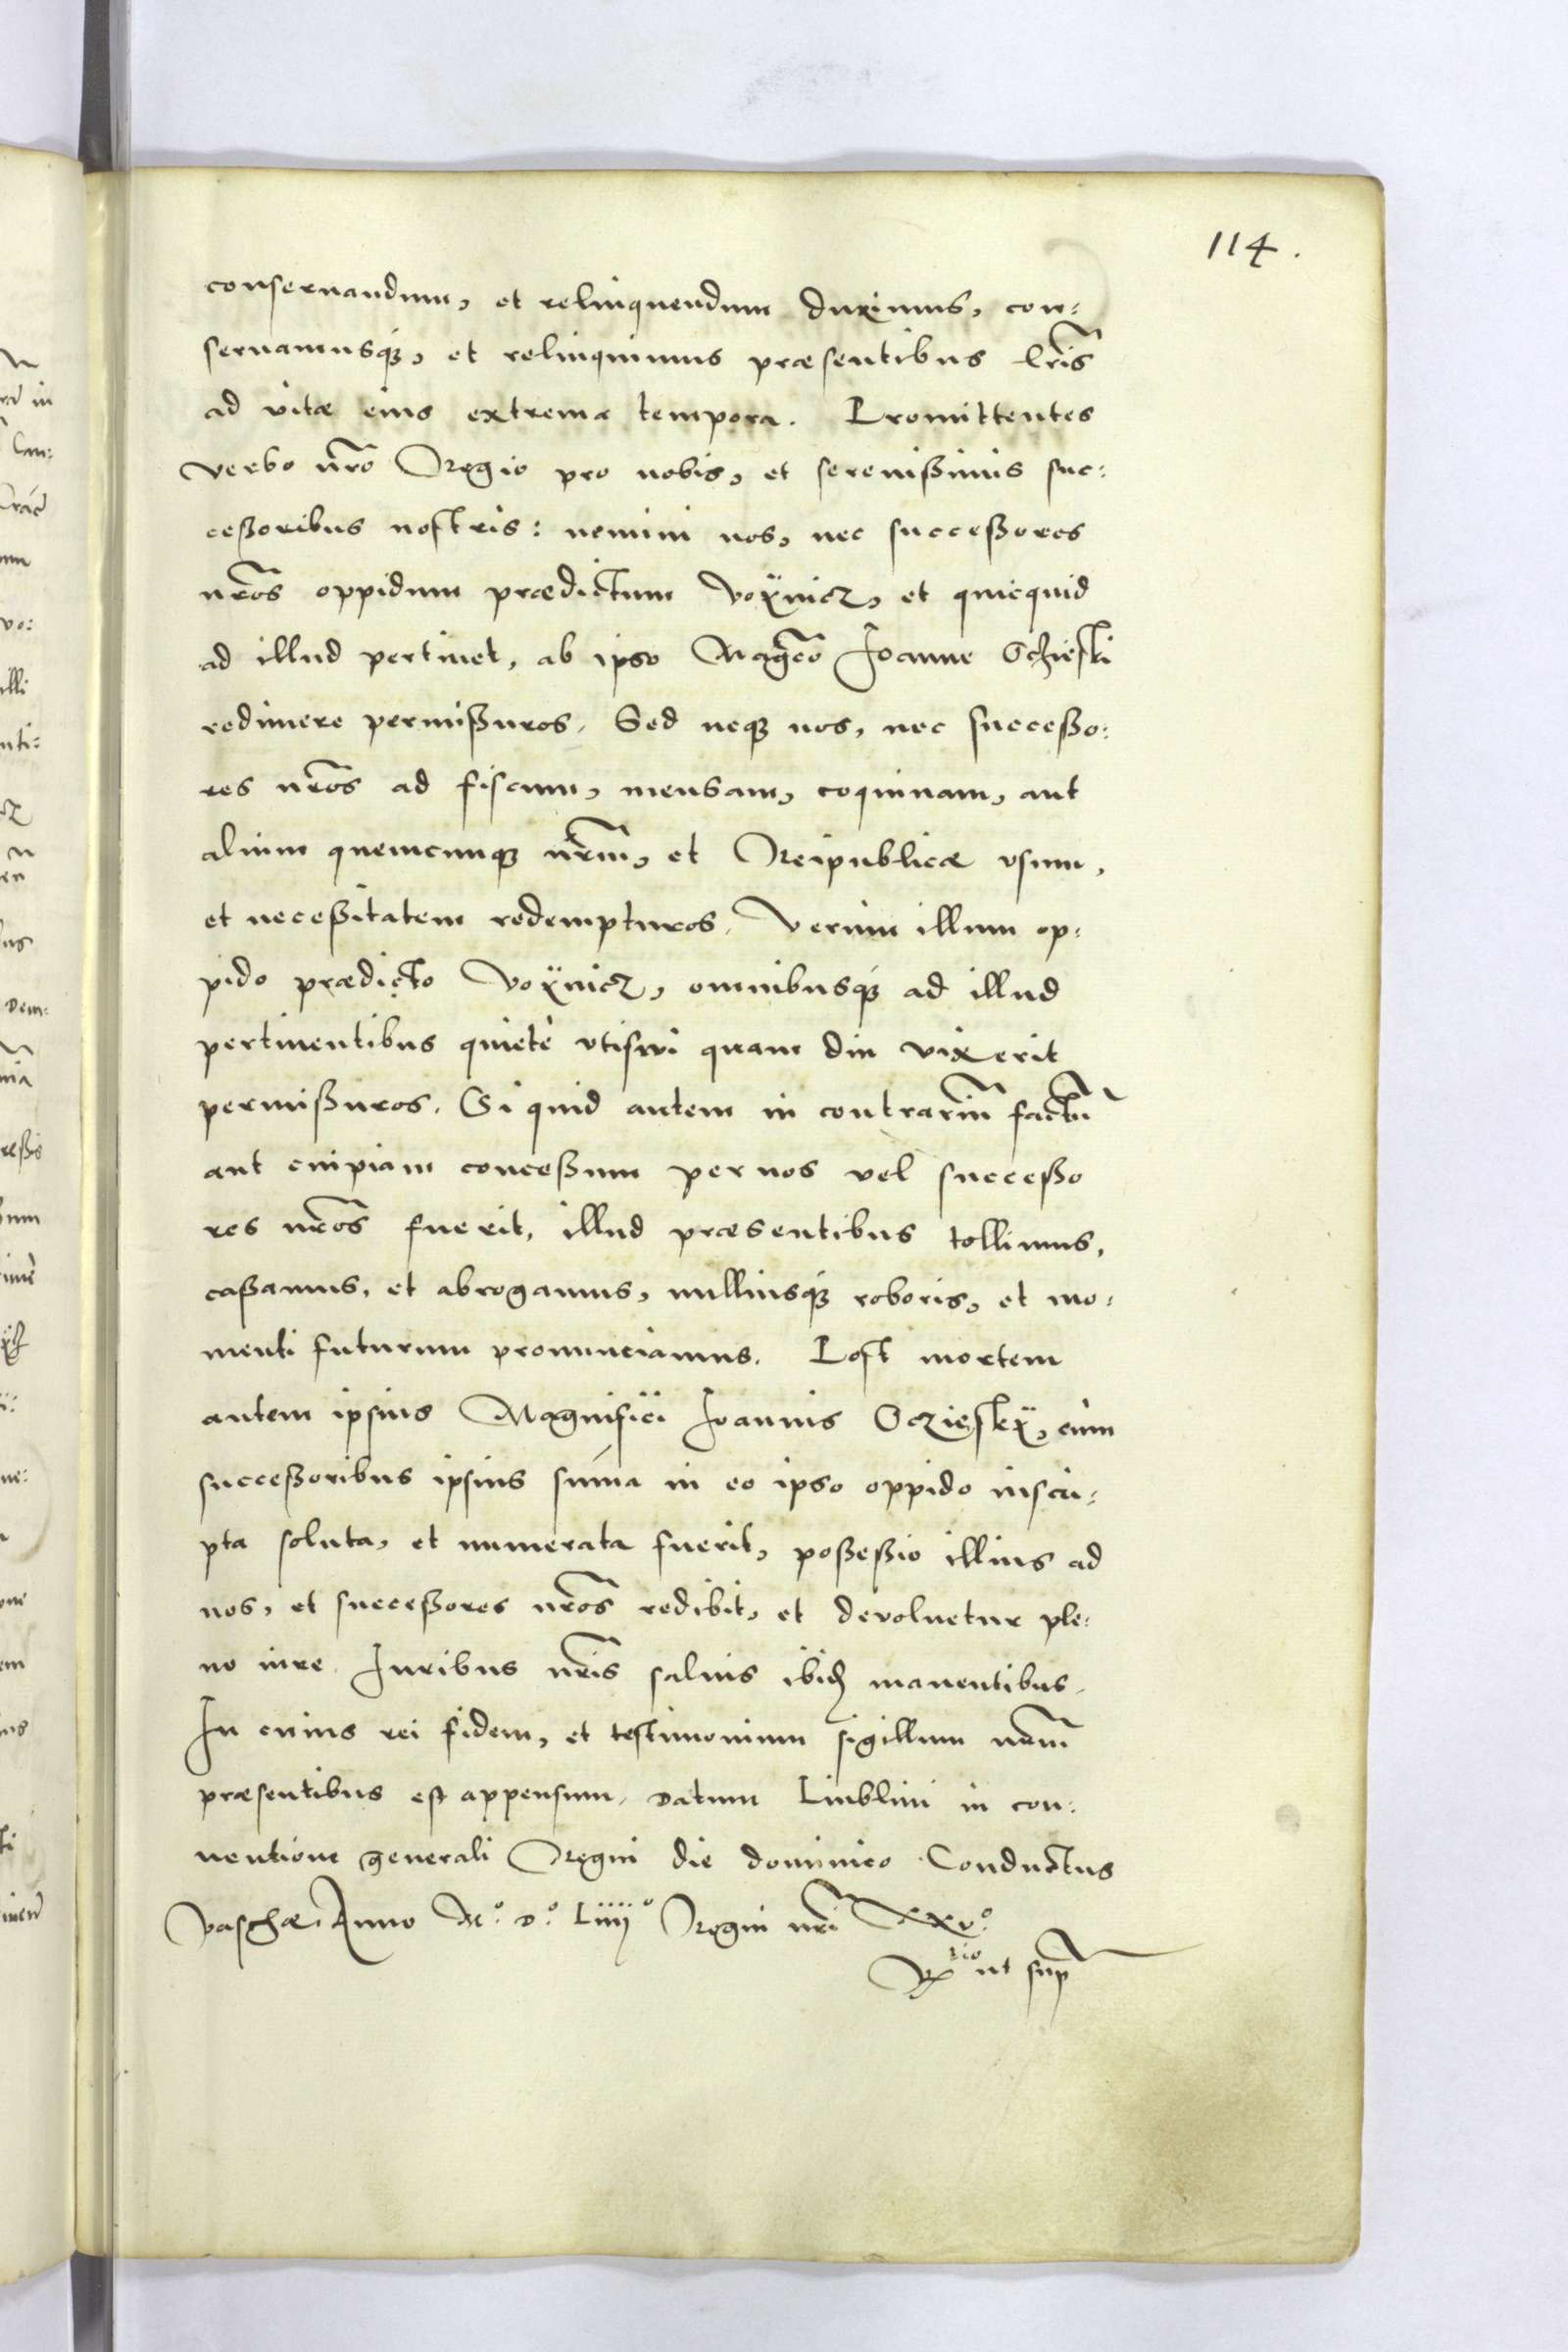 114.
conseruandum, et relinquendum duximus, con:
seruamusq3, et relinquimus præsentibus lr̃is
ad vitæ eius extrema tempora. Promittentes
verbo nr̃o Regio pro nobis, et serenißimis suc:
ceßoribus nostris: nemini nos, nec succeßores
nr̃os oppidum prædictum Voÿnicz, et quicquid
ad illud pertinet, ab ipso Mag̃co Joanne Oczieski
redimere permißuros. Sed neq3 nos, nec succeßo:
res nr̃os ad fiscum, mensam, coquinam, aut
alium quemcunq3 nr̃um, et Reipublicæ vsum,
et neceßitatem redempturos. Verùm illum op:
pido prædicto Voÿnicz, omnibusq3 ad illud
pertinentibus quietè vtifrui quam diu vixerit
permißuros. Si quid autem in contrariũ factũ
aut cuipiam conceßum per nos vel succeßo
res nr̃os fuerit, illud præsentibus tollimus,
caßamus, et abrogamus, nulliusq3 roboris, et mo:
menti futurum pronunciamus. Post mortem
autem ipsius Magnifici Joannis Oczieskÿ, cùm
succeßoribus ipsius sum̃a in eo ipso oppido inscri:
pta soluta, et numerata fuerit, poßeßio illius ad
nos, et succeßores nr̃os redibit, et devoluetur ple:
no iure. Juribus nr̃is saluis ibid̃ manentibus.
In cuius rei fidem, et testimonium sigillum nr̃um
præsentibus est appensum. Datum Liublini in con:
uentione generali Regni die dominico Conductus
Paschæ. Anno M.º D.º Liiijº Regni nr̃i XXVº.
R̃tio ut sup̃